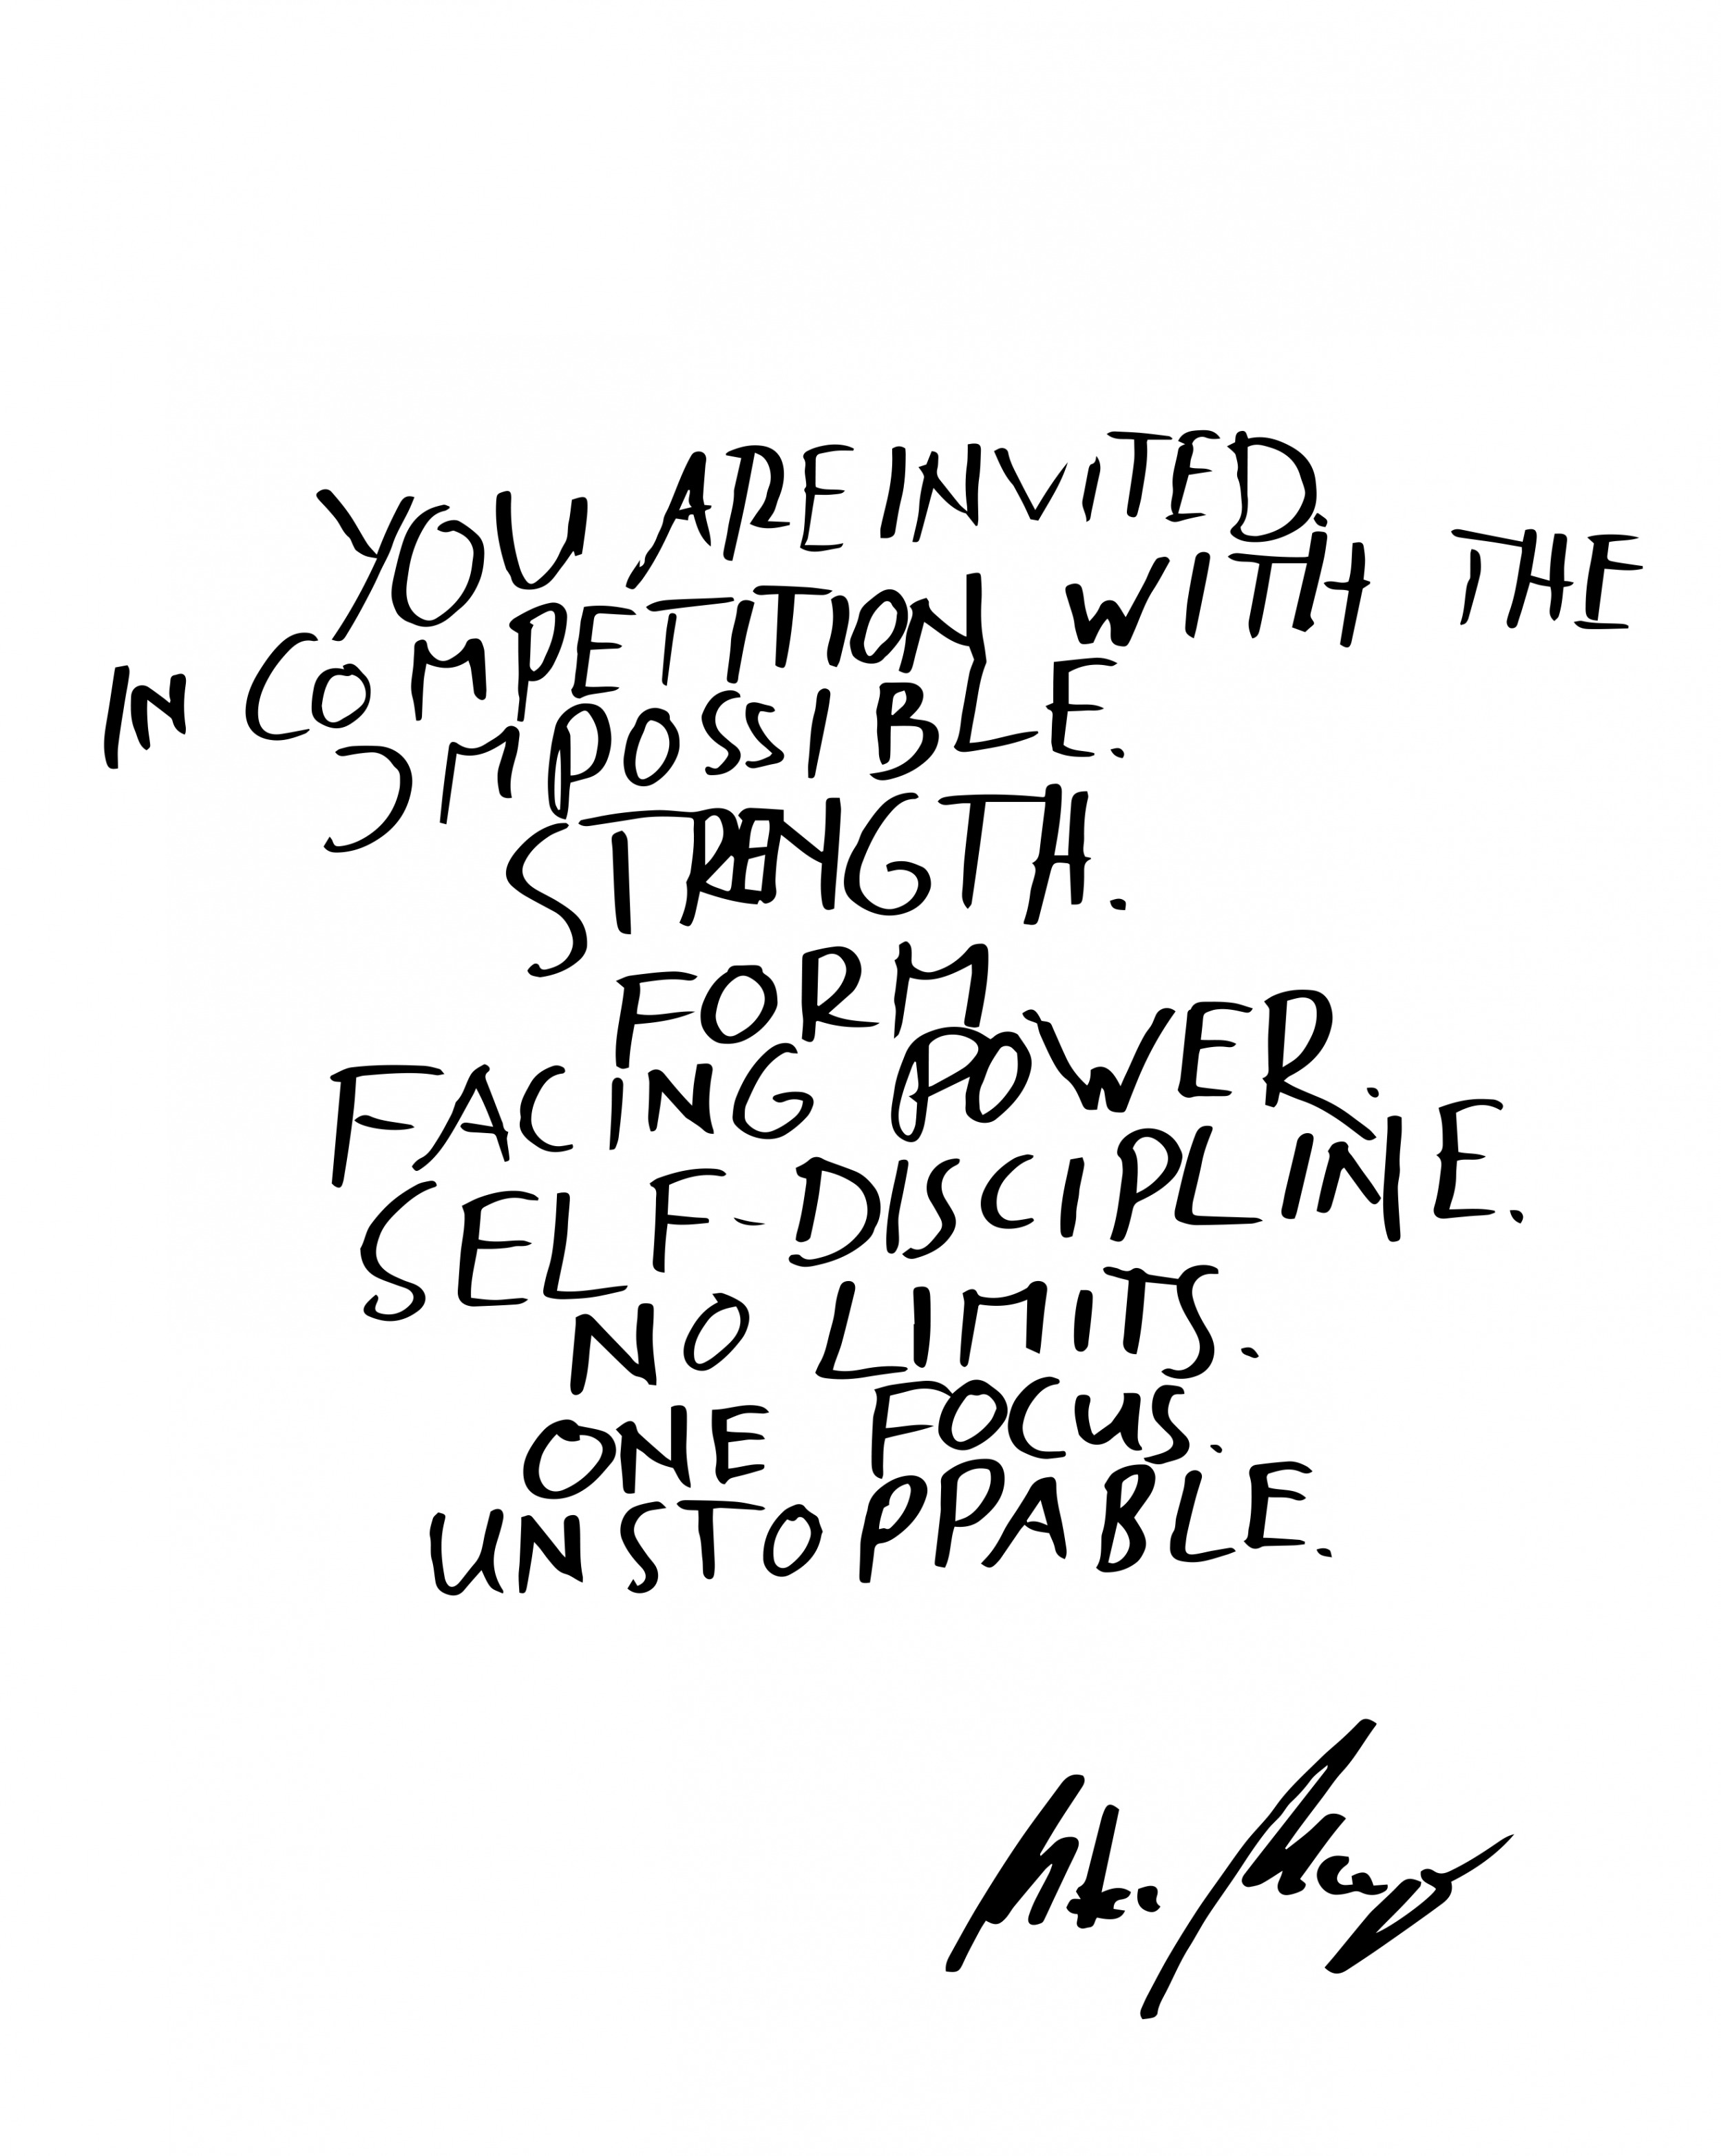 YOU ARE KEVIN INVITED.
IN COMPETITION WITH THE
IMPOSSIBLE.
STRENGTH.
FORM.
FACING POWER.
SELF-DISCIPLINE.
NO LIMITS.
ONE FOCUS.
UNSTOPPABLE.